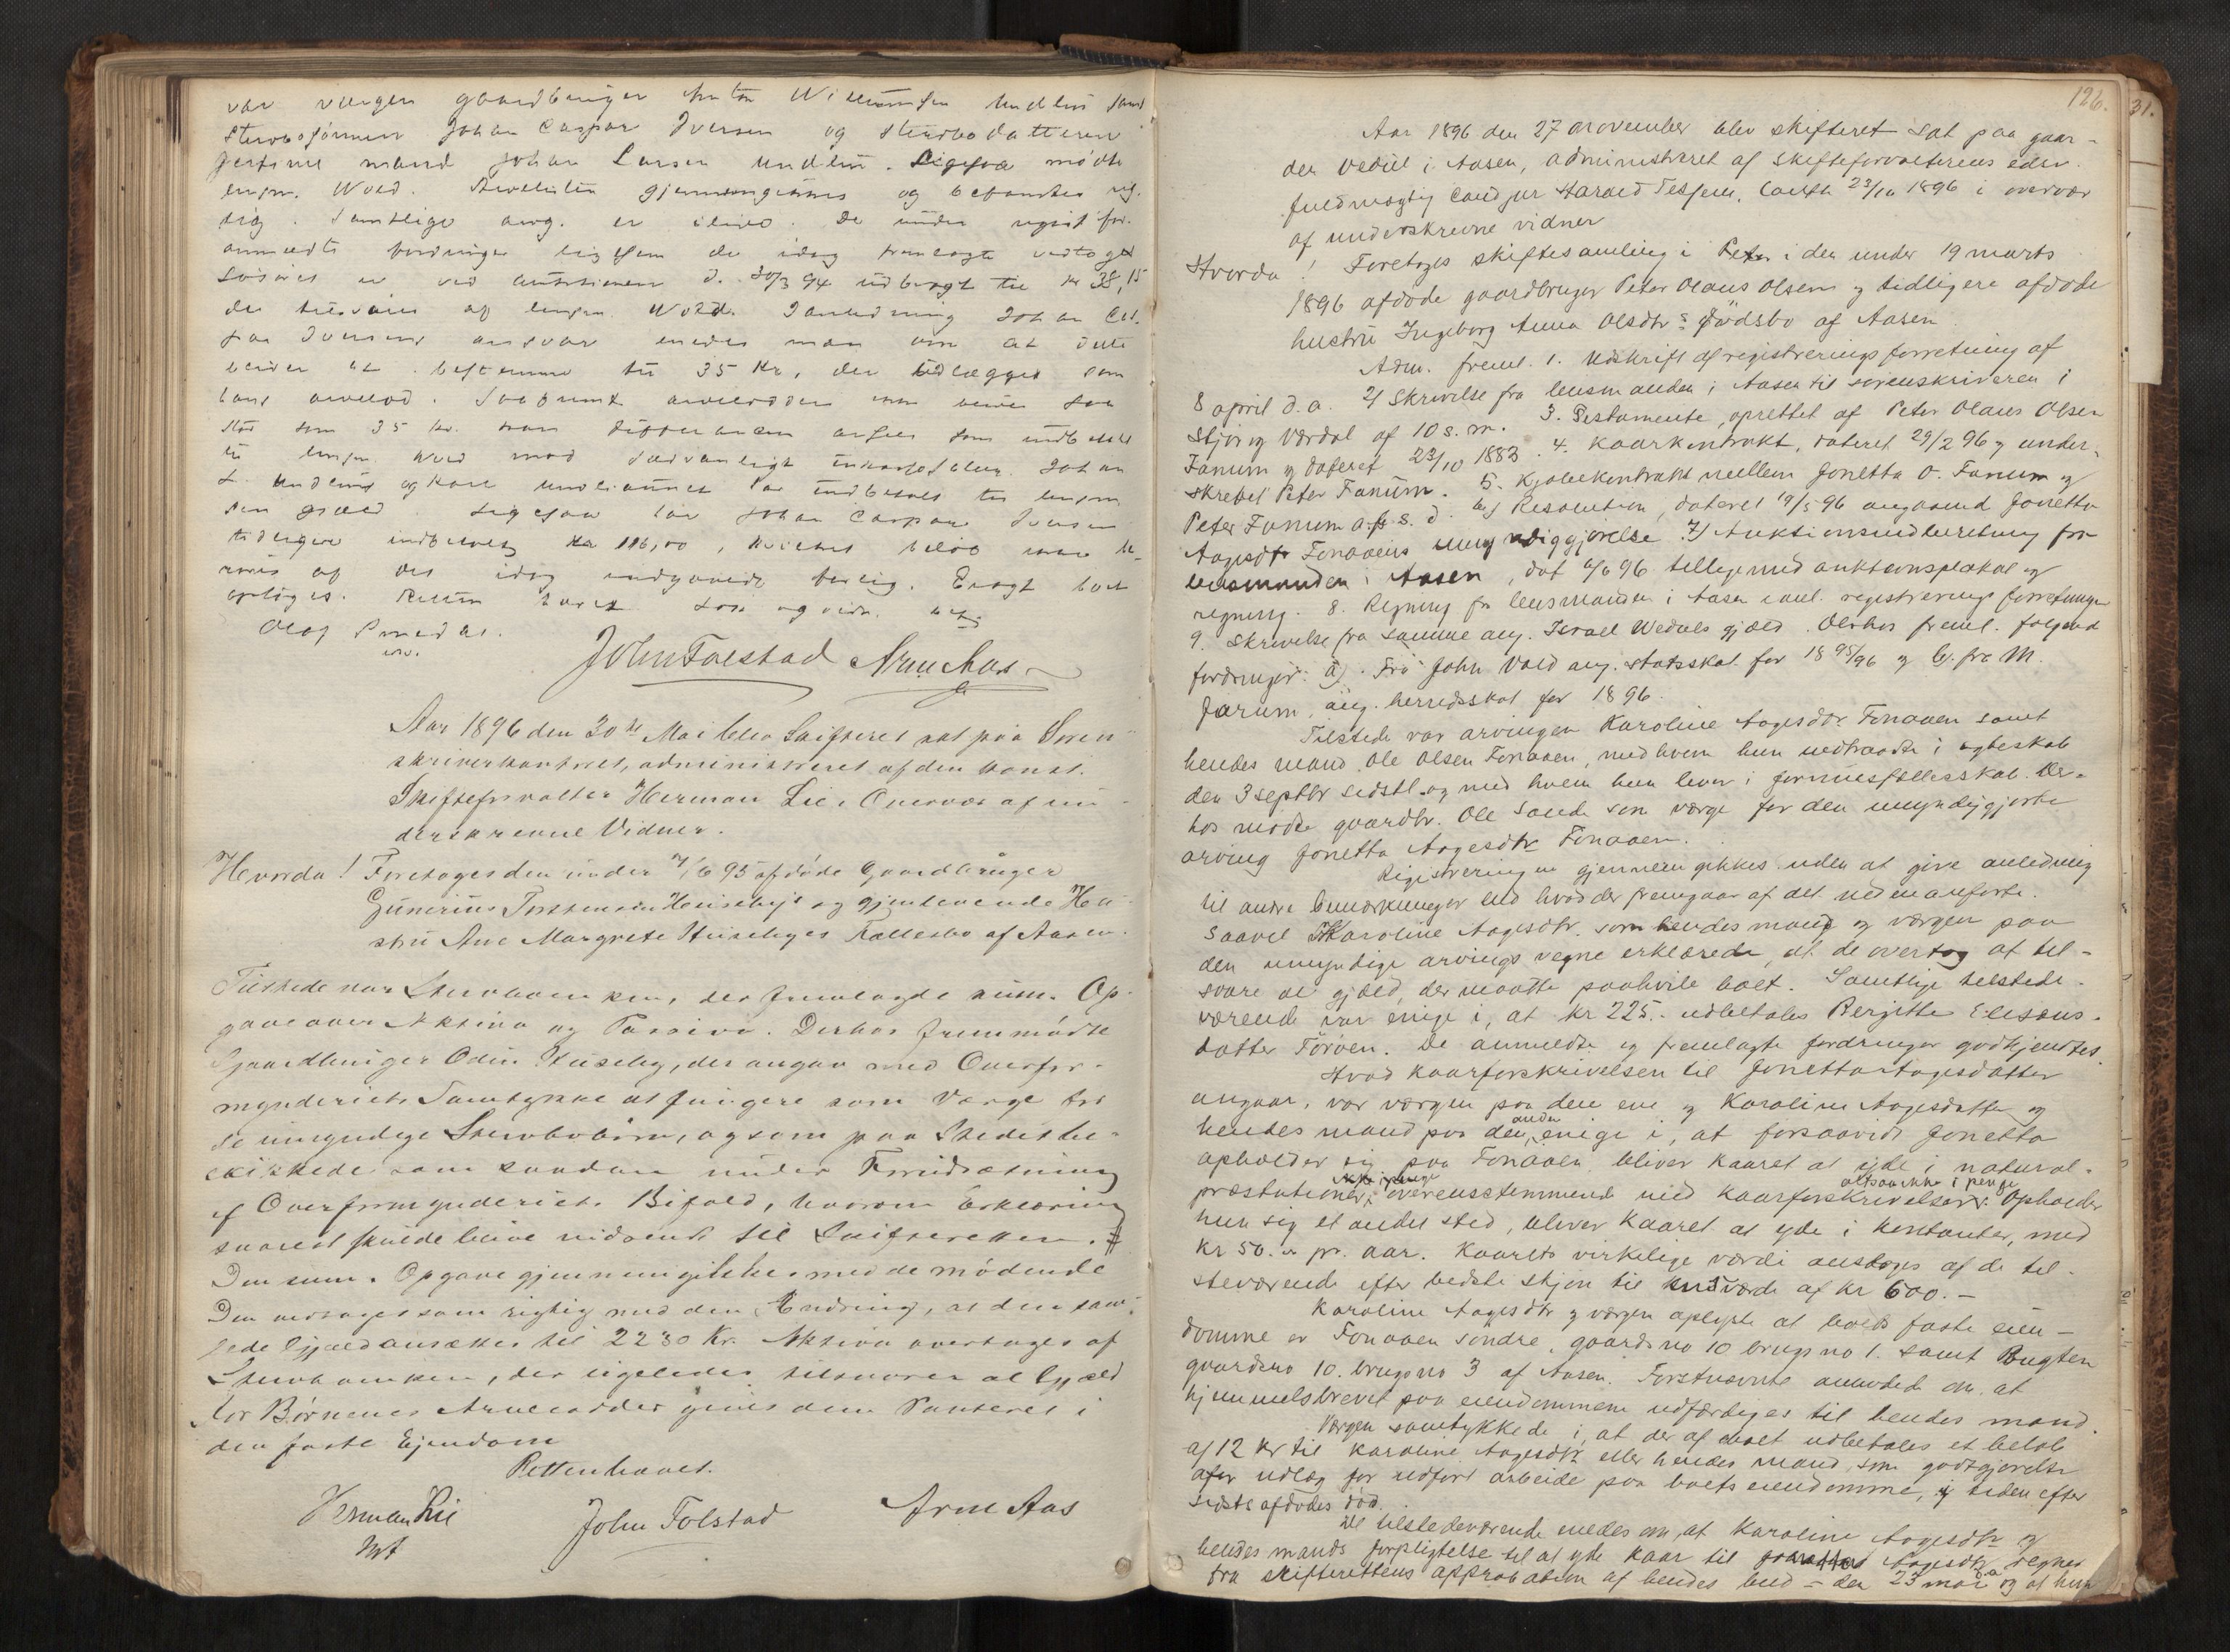 var værgen gaardbruger Willumsen Undlien samt
Stervbosønnen Johan Caspar Iversen og Stervbodatteren
mand Johan Larsen Undlien. Ligesaa mødte
lensm. Wold. gjennemgikkes og befandtes rig-
tig. Samtlige arvg. er
anmeldte fordringer ligesom de idag fremlagte vedtoges
Løsøret er ved auktionen d. 30/3 94 udbragt til Kr 38,15
der tilsvares af lensm. Wold. Johan Cas-
par Iversens ansvar man om at dette
til 35 Kr, der udlægges som
hans arvelod.
som 35 Kr.
til lensm. Wold mod sædvanligt Johan
L. Undlien og har indbetalt til lensm.
sin gjæld. Ligesaa har Johan Caspar Iversen
tidligere indbetalt Kr 116,00, hvilket beløb
af det idag
Retten hævet
Olaf
John Folstad Arne Aas
Aar 1896 den 30te Mai blev Skifteret sat paa Soren-
skriverkontoret, administreret af den konst.
Skifteforvalter Herman Lie i Overvær af un-
derskrevne Vidner.
Hvorda! Foretoges den under 7/6 95 afdøde Gaardbruger
Gunerius Torstensen Husebys og gjenlevende Hu-
stru Ane Margrete Husebyes Fællesbo af Aasen.
Tilstede var Stervboenken, der fremlagde sum. Op-
gave over Aktiva og Passiva. Derhos fremmødte
Gaardbruger Odin Huseby, der angav med Overfor-
mynderiets Samtykke at fungere som Værge for
de umyndige Stervbobørn, og som paa Stedet be-
skikkedes som saadan under Forudsætning
af Overformynderiets Bifald, hvorom Erklæring
snarest skulde blive indsendt til Skifteretten. #
Den sum. Opgave gjennemgikkes med de mødende
Den vedtoges som rigtig med den Ændring, at den sam-
lede Gjæld ansættes til 2230 Kr. Aktiva overtages af
Stervboenken, der ligeledes tilsvarer al Gjæld
For Børnenes Arvelodder gives dem Panteret i
den faste Ejendom
Retten hævet.
Herman Lie John Folstad Arne Aas
126.
31.
Aar 1896 den 27 november blev skifteret sat paa gaar-
den Vedul i Aasen, administreret af skifteforvalterens edsv.
fuldmægtig cand jur Harald Tessem, 23/10 1896 i overvær
af underskrevne vidner
Hvorda! Foretoges skiftesamling i Peter i den under 19 marts
1896 afdøde gaardbruger Peter Olaus Olsens og tidligere afdøde
hustru Ingeborg Anna Olsdtr's dødsbo af Aasen
Adm. freml. 1. Udskrift af registreringsforretning af
8 april d.a. 2) Skrivelse fra lensmanden i Aasen til sorenskriveren i
Stjør og Værdal af 10 s.m. 3. Testamente, oprettet af Peter Olaus Olsen
Fanum og dateret 23/10 1883. 4. Kaarkontrakt, dateret 29/2 96 og under-
skrevet Peter Fanum. 5. Kjøbekontrakt mellem Jonetta O. Fanum og
Peter Fanum af s. d. 6) Resolution, dateret 19/5 96 angaaend Jonetta
Aagesdtr Fonaaens umyndiggjørelse. 7) Auktionsindberetning fra
lensmanden i Aasen, dat 6/6 96 tilligemed auktionsplakat og
regning. 8. Regning fra lensmanden i Aasen registreringsforretningen
9. Skrivelse fra samme ang. Israel Weduls gjæld. Derhos freml. følgend
fordringer: a). Fra John Vold ang. statsskat for 1895/96 og b). fra M.
Jørum, ang. herredsskat for 1896.
Tilstede var arvingen Karoline Aagesdtr. Fonaaen samt
hendes mand Ole Olsen Fonaaen, med hvem hun indtraadte i egteskab
den 3 septbr sidstl. og med hvem hun lever i formuesfællesskab. Der-
hos mødte gaardbr. Ole Sande som værge for den umyndiggjorte
arving Jonetta Aagesdtr Fonaaen.
Registreringen gjennemgikkes uden at give anledning
til andre bemærkninger end hvad der fremgaar af det nedenanførte.
Saavel Karoline Aagesdtr. som hendes mand og værgen paa
den umyndige arvings vegne erklærede, at de overtog at til-
svare al gjæld, der maatte paahvile boet. Samtlige tilstede-
værende var enige i, at kr 225.- udbetales Bergitte Elisæus-
datter Tørøen. De anmeldte og fremlagte fordringer godkjendtes.
Hvad kaarforskrivelsen til Jonetta Aagesdatter
angaar, var værgen paa den ene og Karoline Aagesdatter og
hendes mand paa den anden enige i, at forsaavidt Jonetta
opholder sig paa Fonaaen, bliver kaaret at yde i natural-
præstationer, overensstemmende med kaarforskrivelsen altsaa ikke i penge. Opholder
hun sig et andet sted, bliver kaaret at yde i kontanter, med
kr 50.- pr. aar. Kaarets virkelige værdi ansloges af de til-
steværende efter bedste skjøn til en værdi af kr 600.-
Karoline Aagesdtr og værgen oplyste at boets faste eien-
domme er Fonaaen søndre, gaardsno 10 brugsno 1. samt Bugten
gaardsno 10. brugsno 3 af Aasen. Førstnævnte anmodede om at
hjemmelsbrevet paa eiendommene udfærdiges til hendes mand.
Værgen samtykkede i, at der af boet udbetales et beløb
af 12 kr til Karoline Aagesdtr eller hendes mand som godtgjørelse
for udlæg for udført arbeide paa boets eiendomme, i tiden efter
sidste afdødes død.
De tilstedeværende enedes om, at Karoline Aagesdtr og
hendes mands forpligtelse til at yde kaar til Aagesdtr regnes
fra skifterettens approbation af hendes bud - den 23 mai og at hun